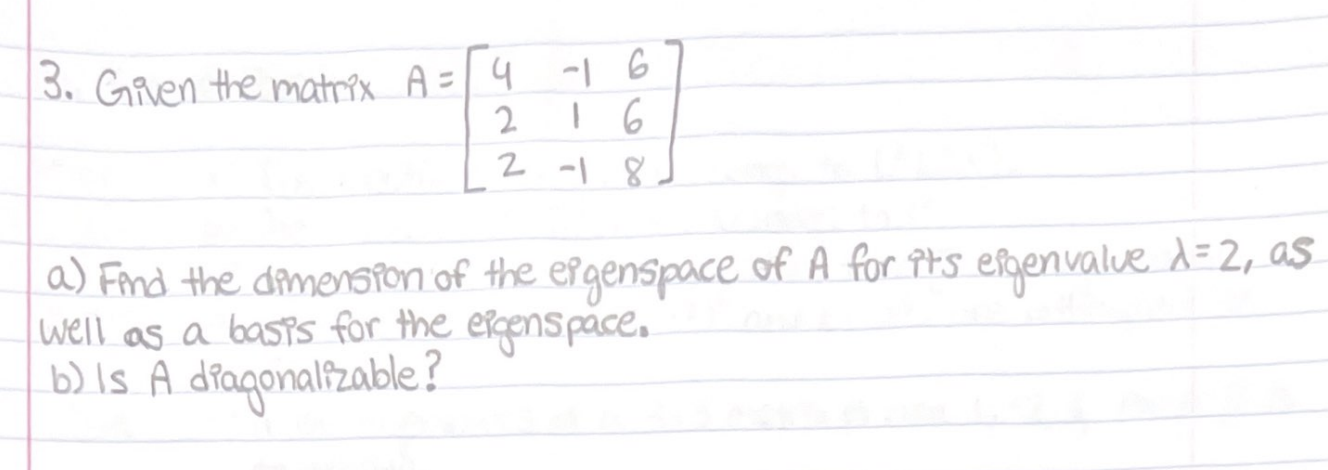 3. Given the matrix A = [ 4 -1 6
2 1 6
2 -1 8 ]
a) Find the dimension of the eigenspace of A for its eigenvalue λ=2, as
well as a basis for the eigenspace.
b) Is A diagonalizable?